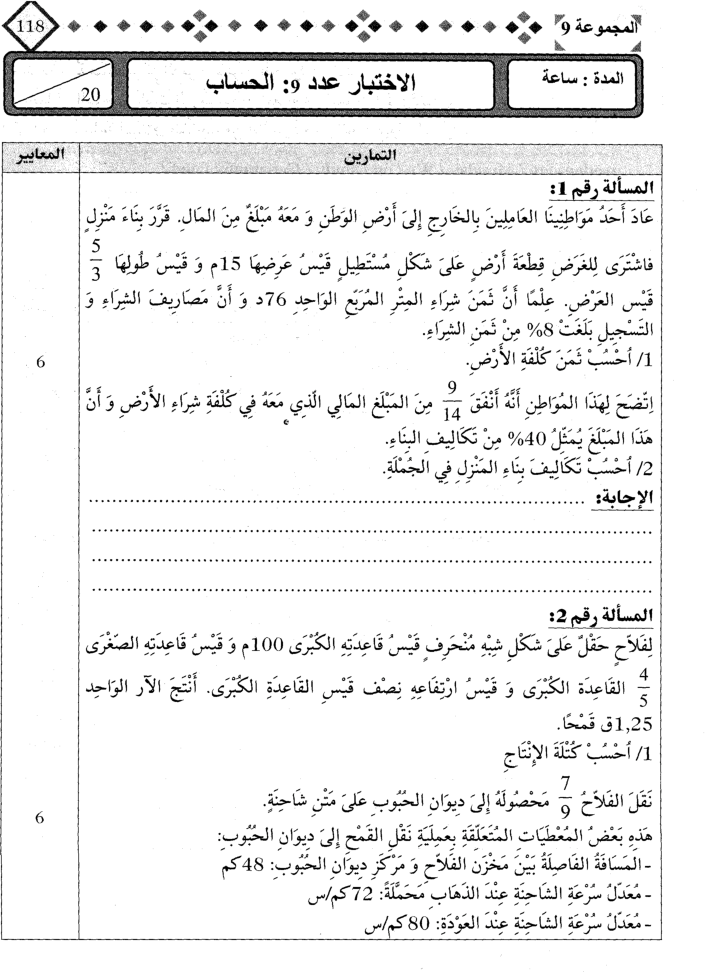 118
المجموعة 9
المدة : ساعة
الاختبار عدد 9: الحساب
20
التمارين
المعايير
المسألة رقم 1:
عَادَ أَحَدُ مَوَاطِنِينَا العَامِلِينَ بِالخَارِجِ إِلَىَ أَرْضِ الوَطَنِ وَ مَعَهُ مَبْلَغٌ مِنَ المَالِ. قَرَّرَ بِنَاءَ مَنْزِلٍ
فاشْتَرَى لِلغَرَضِ قِطْعَةَ أَرْضٍ عَلَىَ شَكْلِ مُسْتَطِيلٍ قَيْسُ عَرضِهَا 15م وَ قَيْسُ طُولِهَا 5/3
قَيْس العَرْضِ. عِلْمًا أَنَّ ثَمَنَ شِرَاءِ المِتْرِ المُرَبّعِ الوَاحِدِ 76د وَ أَنَّ مَصَارِيفَ الشِرَاءِ وَ
التَسْجِيلِ بَلَغَتْ 8% مِنْ ثَمَنِ الشِرَاءِ.
1/ اُحْسُبْ ثَمَنَ كُلْفَةِ الأَرْضِ.
6
اِتّضَحَ لِهَذَا المُوَاطِنِ أَنَّهُ أَنْفَقَ 9/14 مِنَ المَبْلَغِ المَالِي الّذِي مَعَهُ فِي كُلْفَةِ شِرَاءِ الأَرْضِ وَ أَنَّ
هَذَا المَبْلَغَ يُمَثِّلُ 40% مِنْ تَكَالِيفِ البِنَاءِ.
2/ اُحْسُبْ تَكَالِيفَ بِنَاءِ المَنْزِلِ فِي الجُمْلَةِ.
الإجابة: ........................................................
........................................................
........................................................
........................................................
المسألة رقم 2:
لِفَلاّحٍ حَقْلٌ عَلَىَ شَكْلِ شِبْهِ مُنْحَرِفٍ قَيْسُ قَاعِدَتِهِ الكُبْرَى 100م وَ قَيْسُ قَاعِدَتِهِ الصّغْرَى
4/5 القَاعِدَة الكُبْرَى وَ قَيْسُ ارْتِفَاعِهِ نِصْف قَيْسِ القَاعِدَةِ الكُبْرَى. أَنْتَجَ الآر الوَاحِد
1,25ق قَمْحًا.
1/ اُحْسُبْ كُتْلَةَ الإِنْتَاجِ
نَقَلَ الفَلاّحُ 7/9 مَحْصُولَهُ إِلَىَ دِيوَانِ الحُبُوبِ عَلَىَ مَتْنِ شَاحِنَةٍ.
6
هَذِهِ بَعْضُ المُعْطَيَاتِ المُتَعَلّقَةِ بِعَمَلِيَةِ نَقْلِ القَمْحِ إِلَىَ دِيوَانِ الحُبُوبِ:
- المَسَافَةُ الفَاصِلَةُ بَيْنَ مَخْزَنِ الفَلاّحِ وَ مَرْكَزِ دِيوَانِ الحُبُوبِ: 48كم
- مُعَدَلُ سُرْعَةِ الشَاحِنَةِ عِنْدَ الذَهَابِ مَحَمَّلَةً: 72كم/س
- مُعَدَلُ سُرْعَةِ الشَاحِنَةِ عِنْدَ العَوْدَةِ: 80كم/س